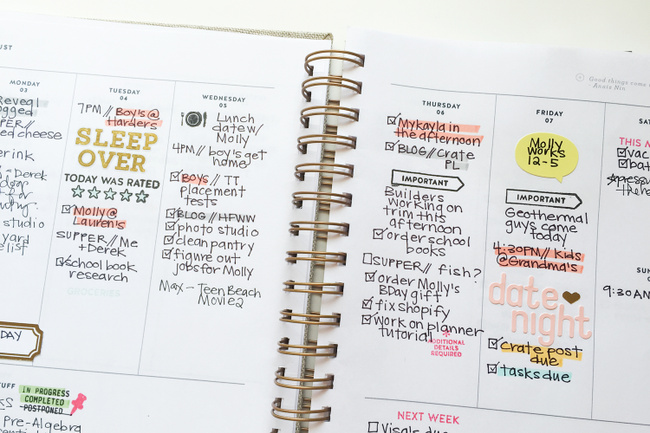 UST
MONDAY
03
ed cheese
erink
studio
yard
DAY
TUESDAY
04
7PM // Boy's @
Harders
SLEEP
OVER
TODAY WAS RATED
☑ Molly @
Lauren's
SUPPER // Me
+ Derek
☑ School book
research
GROCERIES
WEDNESDAY
05
Lunch
date w/
Molly
4PM // boy's get
home
☑ BOYS // TT
placement
tests
☑ BLOG // HFWW
☑ photo studio
☑ clean pantry
☑ figure out
jobs for Molly
Max - Teen Beach
Movie 2
TUFF
IN PROGRESS
COMPLETED
POSTPONED
Pre-Algebra
THURSDAY
06
☑ Mykayla in
the afternoon
☑ BLOG // crate
PL
IMPORTANT
Builders
working on
trim this
afternoon
☑ order school
books
☐ SUPPER // fish?
☑ order Molly's
BDay gift
☑ fix shopify
☑ Work on planner
tutorial
* ADDITIONAL
DETAILS
REQUIRED
NEXT WEEK
FRIDAY
07
Molly
works
12-5
IMPORTANT
Geothermal
guys come
today
4:30PM // kids
@Grandma's
date
night
☑ Crate post
due
☑ tasks due
Good things come
Anaïs Nin
SAT
THIS
☑ vac
☑ bat
SUND
9:30AM